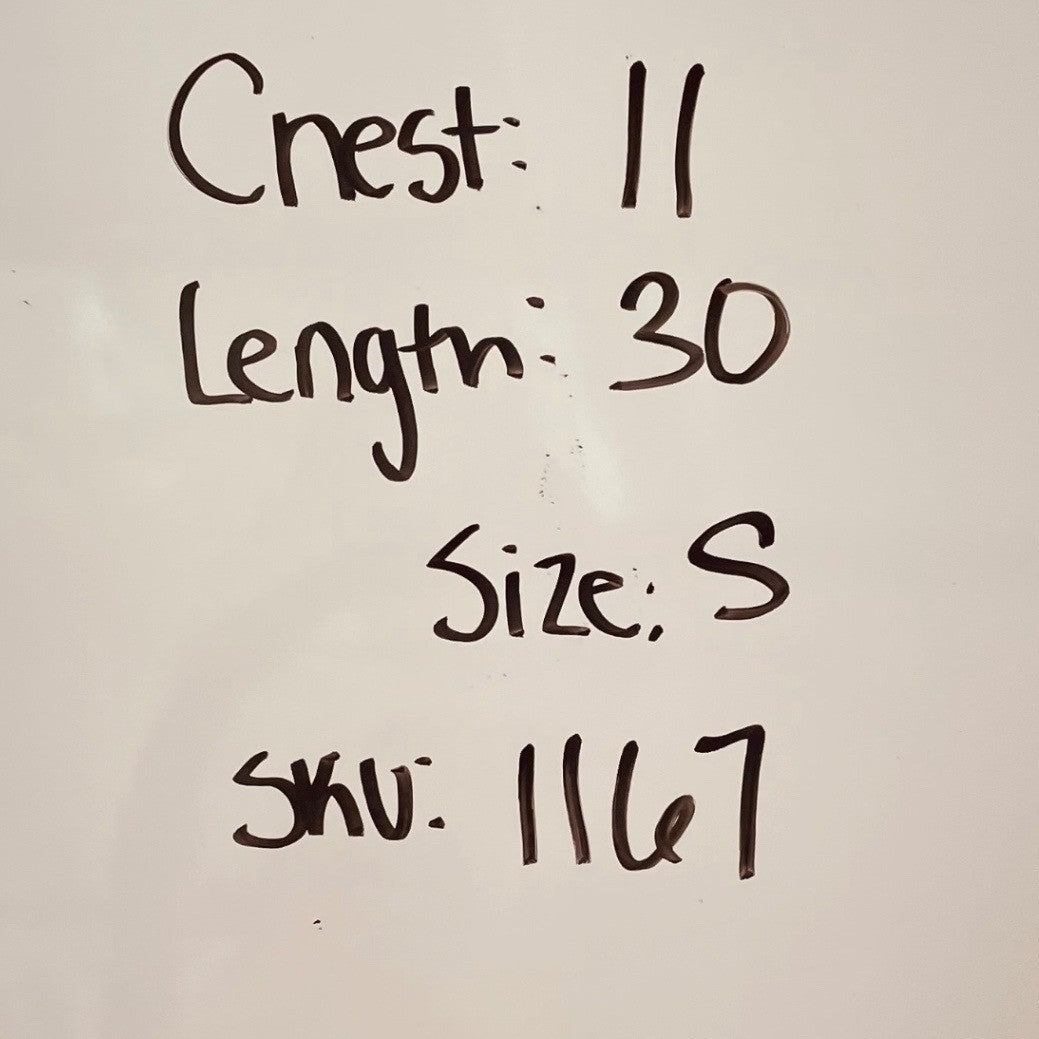 Chest: 11
Length: 30
Size: S
SKU: 1167